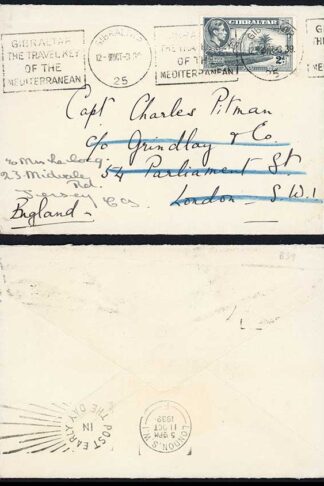 GIBRALTAR
THE TRAVEL KEY
OF THE
MEDITERRANEAN
GIBRALTAR
25
THE TRAVEL KEY
OF THE
MEDITERRANEAN
GIBRALTAR
2d
25
Capt Charles Pitman
c/o Grindlay & Co.
54 Parliament St.
London - S.W.1
England
c/o Mrs
23 Midvale
Rd.
Jersey C.I.
POST EARLY
IN
THE DAY
LONDON. S.W.1
5 PM
11 OCT
1939